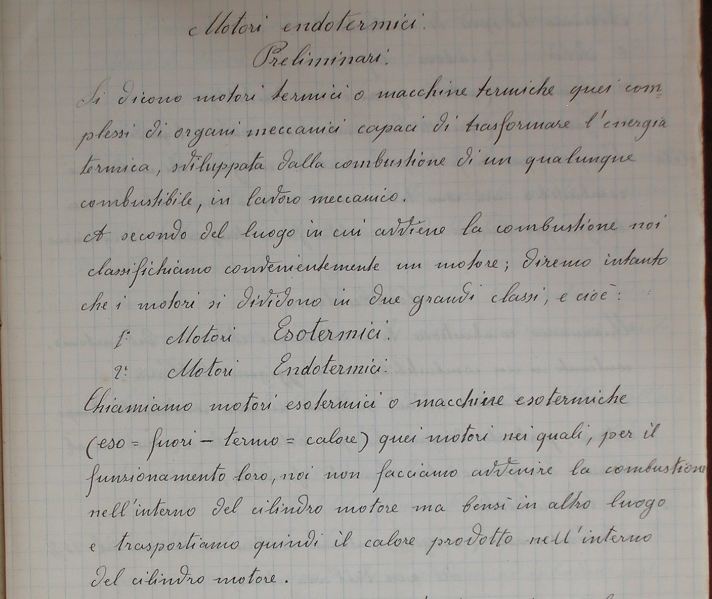 Motori endotermici.
Preliminari.
Si dicono motori termici o macchine termiche quei com=
plessi di organi meccanici capaci di trasformare l'energia
termica, sviluppata dalla combustione di un qualunque
combustibile, in lavoro meccanico.
A secondo del luogo in cui avviene la combustione noi
classifichiamo convenientemente un motore; diremo intanto
che i motori si dividono in due grandi classi, e cioè:
1° Motori Esotermici.
2° Motori Endotermici.
Chiamiamo motori esotermici o macchine esotermiche
(eso = fuori - termo = calore) quei motori nei quali, per il
funzionamento loro, noi non facciamo avvenire la combustione
nell'interno del cilindro motore ma bensì in altro luogo
e trasportiamo quindi il calore prodotto nell'interno
del cilindro motore.